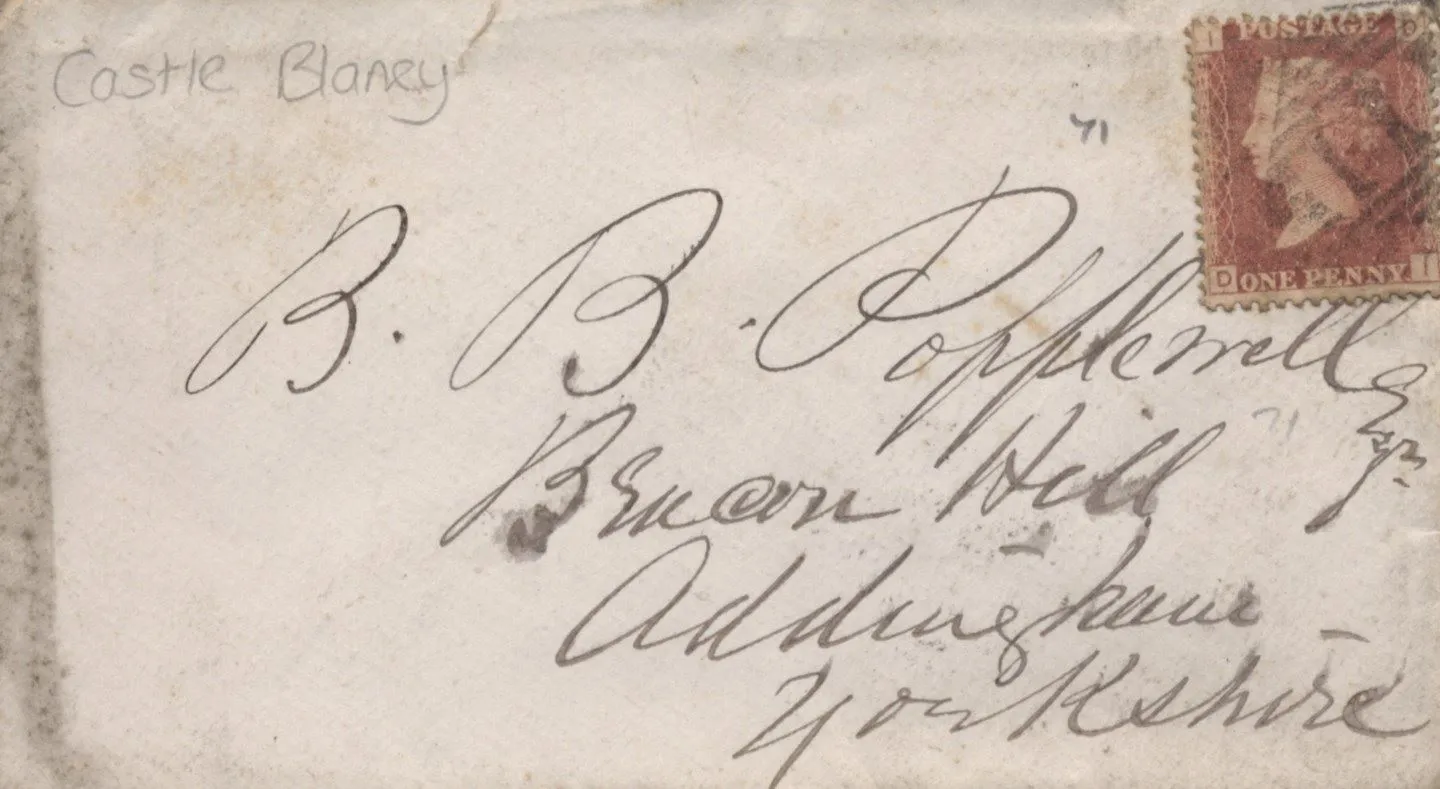 Castle Blaney
I POSTAGE D
71
D ONE PENNY I
B. B. Popplewell Esqr.
71
Beacon Hill
Addingham
Yorkshire